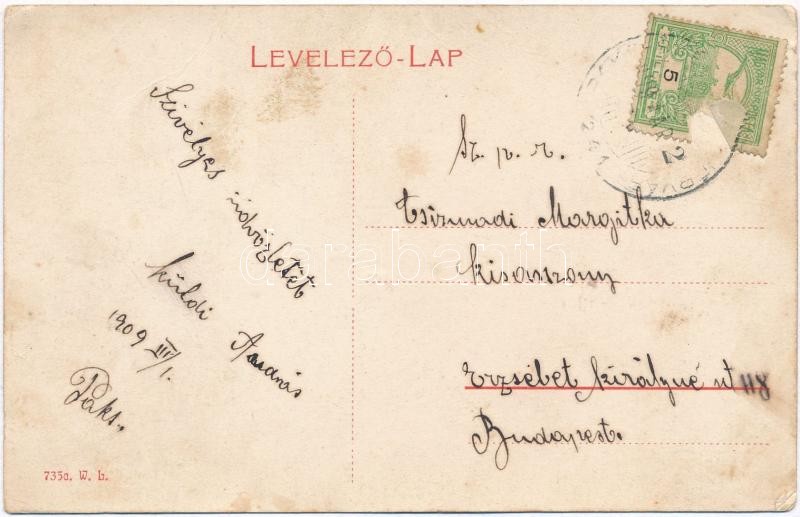 LEVELEZŐ-LAP
Szivélyes
üdvözletét
küldi
1909 III/1.
Paks.
Sz. p. r.
Csizmadi Margitka
kisasszony
Erzsébet királyné ut 118
Budapest.
735a. W. L.
5
darabanth